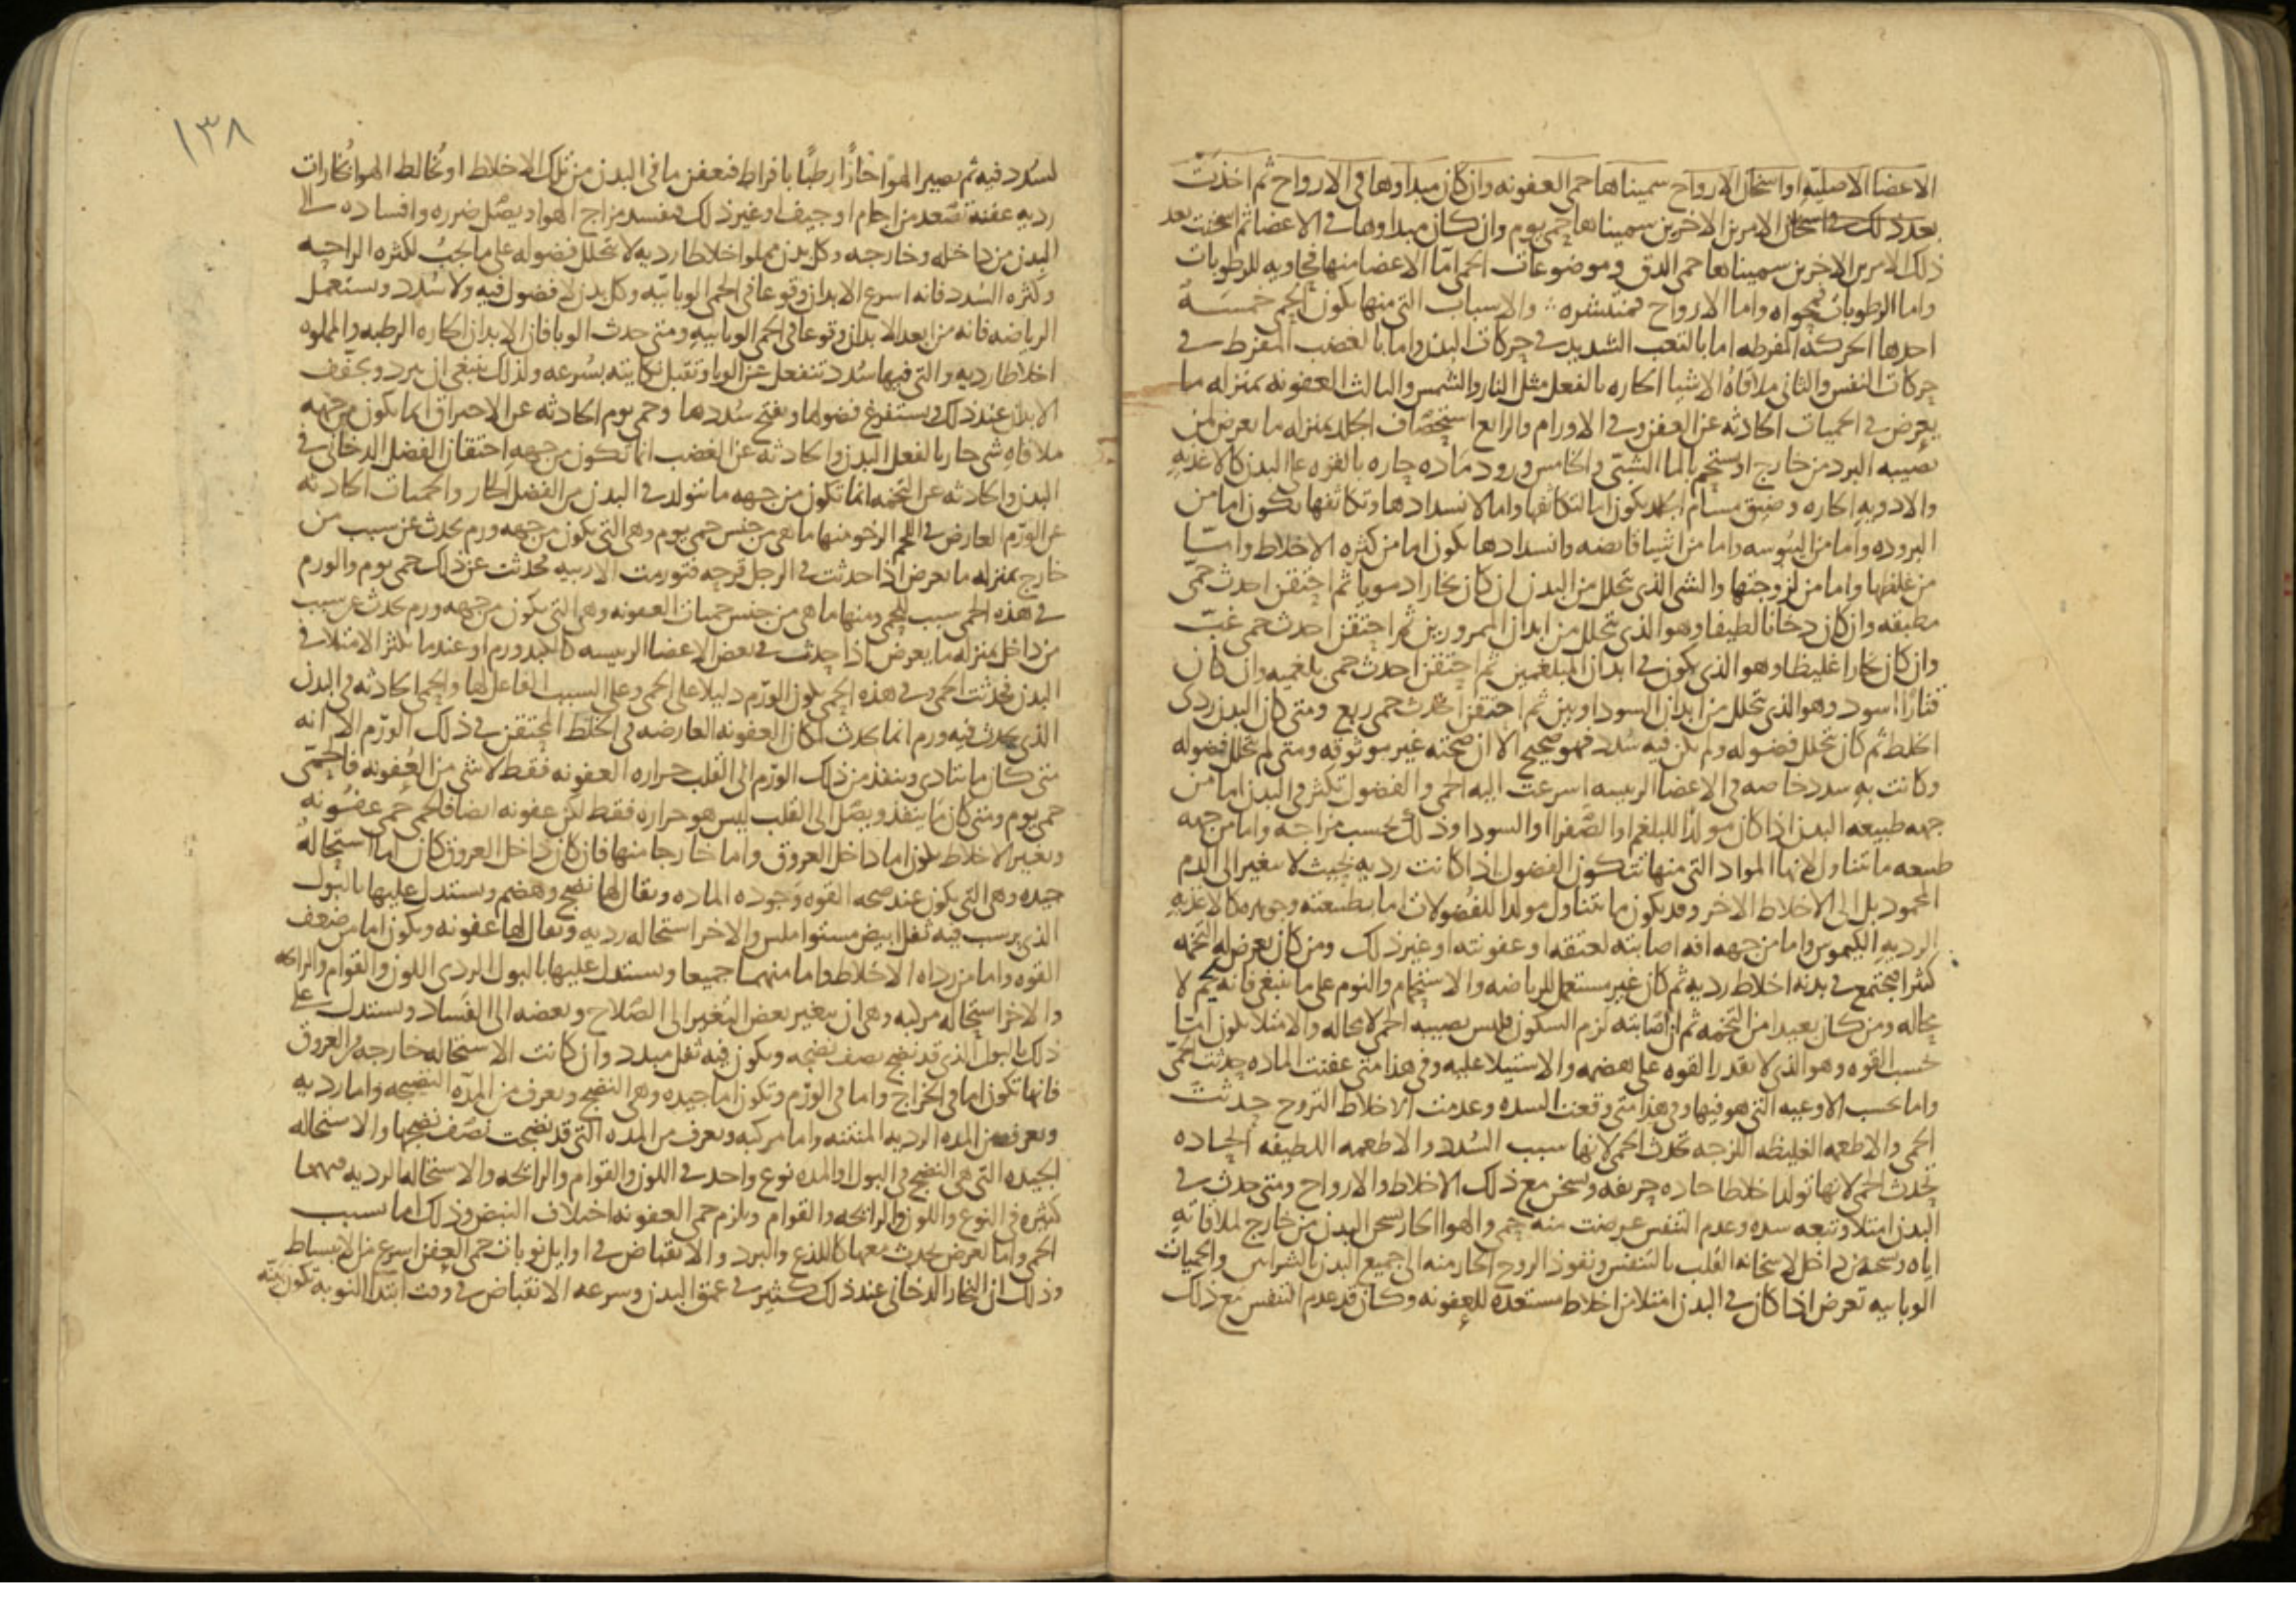 الاعضا الاصليه او اسخان الارواح سميناها حمى العفونه وان كان مبداوها في الارواح ثم اخذت
بعد ذلك في اسخان الامرين الاخرين سميناها حمى يوم وان كان مبداوها في الاعضا ثم اسخنت بعد
ذلك الامرين الاخرين سميناها حمى الدق وموضوعات الحمى اما الاعضا منها فحاويه للرطوبات
واما الرطوبات فمحواه واما الارواح فمنتشره ∴ والاسباب التي منها يكون الحمى خمسه
احدها الحركه المفرطه اما بالتعب الشديد في حركات البدن واما بالغضب المفرط في
حركات النفس والثاني ملاقاه الاشيا الحاره بالفعل مثل النار والشمس والثالث العفونه بمنزله ما
يعرض في الحميات الحادثه عن العفن وفي الاورام والرابع استحصاف الجلد بمنزله ما يعرض لمن
يصيبه البرد من خارج او يستحم بالما الشبي والخامس ورود ماده حاره بالقوه على البدن كالاغذيه
والادويه الحاره وضيق مسام الجلد يكون اما لتكاثفها واما لانسدادها وتكاثفها يكون اما من
البروده واما من اليبوسه واما من اشيا قابضه وانسدادها يكون اما من كثره الاخلاط واما
من غلظها واما من لزوجتها والشي الذي تحلل من البدن ان كان بخارا دمويا ثم احتقن احدث حمى
مطبقه وان كان دخانا لطيفا وهو الذي يتحلل من ابدان الممرورين ثم احتقن احدث حمى غب
وان كان بخارا غليظا وهو الذي يكون في ابدان المبلغمين ثم احتقن احدث حمى بلغميه وان كان
قتارا اسود وهو الذي تحلل من ابدان السوداويين ثم احتقن احدث حمى ربع ومتى كان البدن ردى
الخلط ثم كان تحلل فضوله ولم يكن فيه سدد فهو صحيح الا ان صحته غير موثوقه ومتى لم تحلل فضوله
وكانت به سدد خاصه في الاعضا الرييسه اسرعت اليه الحمى والفضول تكثر في البدن اما من
جهه طبيعه البدن اذا كان مولدا للبلغم او الصفرا او السودا وذلك بحسب مزاجه واما من جهه
طبيعه ما تتناول لانها المواد التي منها تتكون الفضول اذا كانت رديه بحيث لا تتغير الى الدم
المحمود بل الى الاخلاط الاخر وقد يكون ما يتناول مولدا للفضولات اما بطبيعته وجوهره كالاغذيه
الرديه الكيموس واما من جهه افه اصابته لعتقه او عفونته او غير ذلك ومن كان يعرض له التخمه
كثيرا فيجتمع في بدنه اخلاط رديه ثم كان غير مستعمل للرياضه والاستحمام والنوم على ما ينبغي فانه يحم لا
محاله ومن كان بعيدا من التخمه ثم ان اصابته لزم السكون فليس يصيبه الحمى لا محاله والامتلا يكون اما
بحسب القوه وهو الذي لا تقدر القوه على هضمه والاستيلا عليه وفي هذا متى عفنت الماده حدثت الحمى
واما بحسب الاوعيه التي هو فيها وفي هذا متى وقعت السده وعدمت الاخلاط التروح حدثت
الحمى والاطعمه الغليظه اللزجه تحدث الحمى لانها سبب السدد والاطعمه اللطيفه الحاده
تحدث الحمى لانها تولد اخلاطا حاده حريفه وتسخن مع ذلك الاخلاط والارواح ومتى حدث في
البدن امتلا وتبعه سده وعدم التنفس عرضت منه حمى والهوا الحار يسخن البدن من خارج لملاقاته
اياه ويسخنه من داخل لاسخانه القلب بالتنفس ونفوذ الروح الحار منه الى جميع البدن بالشرايين والحميات
الوباييه تعرض اذا كان في البدن امتلا من اخلاط مستعده للعفونه وكان قد عدم التنفس مع ذلك
١٣٨
لسدد فيه ثم يصير الهوا حارا رطبا بافراط فتعفن ما في البدن من تلك الاخلاط او تخالط الهوا بخارات
رديه عفنه تصعد من اجام او جيف او غير ذلك فيفسد مزاج الهوا ويصل ضرره وافساده الى
البدن من داخله وخارجه وكل بدن مملو اخلاطا رديه لا تحلل فضوله على ما يجب لكثره الراحه
وكثره السدد فانه اسرع الابدان وقوعا في الحمى الوباييه وكل بدن لا فضول فيه ولا سدد ويستعمل
الرياضه فانه من ابعد الابدان وقوعا في الحمى الوباييه ومتى حدث الوبا فان الابدان الحاره الرطبه والمملوه
اخلاطا رديه والتي فيها سدد تنفعل عن الوبا وتقبل نكايته بسرعه ولذلك ينبغي ان يبرد ويجفف
الابدان عند ذلك ويستفرغ فضولها ويفتح سددها وحمى يوم الحادثه عن الاحتراق انما يكون من جهه
ملاقاه شي حار بالفعل البدن والحادثه عن الغضب انما تكون من جهه احتقان الفضل الدخاني في
البدن والحادثه عن التخمه انما تكون من جهه ما يتولد في البدن من الفضل الحار والحميات الحادثه
عن الورم العارض في اللحم الرخو منها ما هي من جنس حمى يوم وهي التي يكون من جهه ورم يحدث عن سبب من
خارج بمنزله ما يعرض اذا حدثت في الرجل قرحه فتورمت الاربيه فحدثت عن ذلك حمى يوم والورم
في هذه الحمى سبب للحمى ومنها ما هي من جنس حميات العفونه وهي التي يكون من جهه ورم يحدث عن سبب
من داخل بمنزله ما يعرض اذا حدث في بعض الاعضا الرييسه كالكبد ورم او عندما يكثر الامتلا في
البدن فحدثت الحمى وفي هذه الحمى يكون الورم دليلا على الحمى وعلى السبب الفاعل لها والحمى الحادثه في البدن
الذي يحدث فيه ورم انما يحدث لمكان العفونه العارضه في الخلط المحتقن في ذلك الورم الا انه
متى كان ما يتادى وينفذ من ذلك الورم الى القلب حراره العفونه فقط لا شي من العفونه فالحمى
حمى يوم ومتى كان ما ينفذ ويصل الى القلب ليس هو حراره فقط لكن عفونه ايضا فالحمى حمى عفونه
وتغير الاخلاط يكون اما داخل العروق واما خارجا منها فان كان داخل العروق كان اما استحاله
جيده وهي التي يكون عند صحه القوه وجوده الماده ويقال لها نضج وهضم ويستدل عليها بالبول
الذي يرسب فيه ثفل ابيض مستو املس والاخر استحاله رديه ويقال لها عفونه ويكون اما من ضعف
القوه واما من رداه الاخلاط واما منهما جميعا ويستدل عليها بالبول الردي اللون والقوام والرائحه
والاخر استحاله مركبه وهي ان يتغير بعض التغيير الى الصلاح وبعضه الى الفساد ويستدل على
ذلك بالبول الذي قد نضج نصف نضجه ويكون فيه ثفل مبدد وان كانت الاستحاله خارجه من العروق
فانها تكون اما في الخراج واما في الورم وتكون اما جيده وهي النضج ويعرف من المده النضيجه واما رديه
ويعرف من المده الرديه المنتنه واما مركبه ويعرف من المده التي قد نضجت نصف نضجها والاستحاله
الجيده التي هي النضج في البول والمده نوع واحد في اللون والقوام والرائحه والاستحاله الرديه فيهما
كثيره في النوع واللون والرائحه والقوام ويلزم حمى العفونه اختلاف النبض وذلك اما بسبب
الحمى واما لعرض يحدث معها كاللذع والبرد والانقباض في اوايل نوبات حمى العفن اسرع من الانبساط
وذلك ان البخار الدخاني عند ذلك كثير في عمق البدن وسرعه الانقباض في وقت ابتدا النوبه تكون